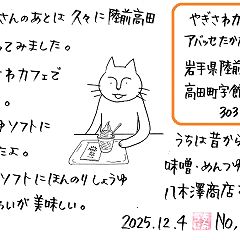 さんのあとは 久々に陸前高田
ってみました。
さわカフェで
。
ゆソフトに
たよ。
ソフトにほんのりしょうゆ
らいが美味しい。
やぎさわカ
アバッセたか
岩手県陸前
高田町字館
303
うちは昔から
味噌・めんつゆ
八木澤商店
2025.12.4
No,